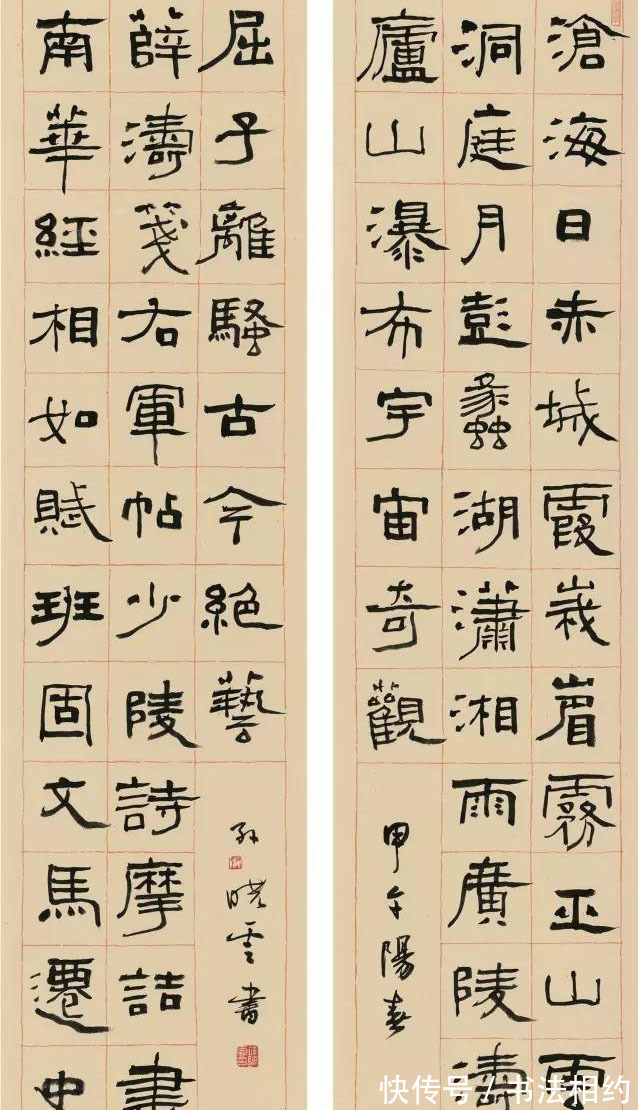 滄海日赤城霞峩嵋霧巫山
洞庭月彭蠡湖瀟湘雨廣陵濤
廬山瀑布宇宙奇觀
甲午陽春
南華經相如賦班固文馬遷史
薛濤箋右軍帖少陵詩摩詰畫
屈子離騷古今絕藝
孫曉雲書
快传号/书法相约